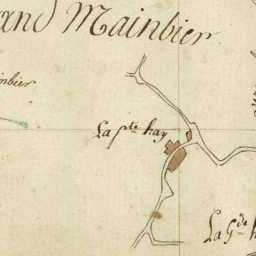 and Mainbier
nbier
La pte hay
La Gde h